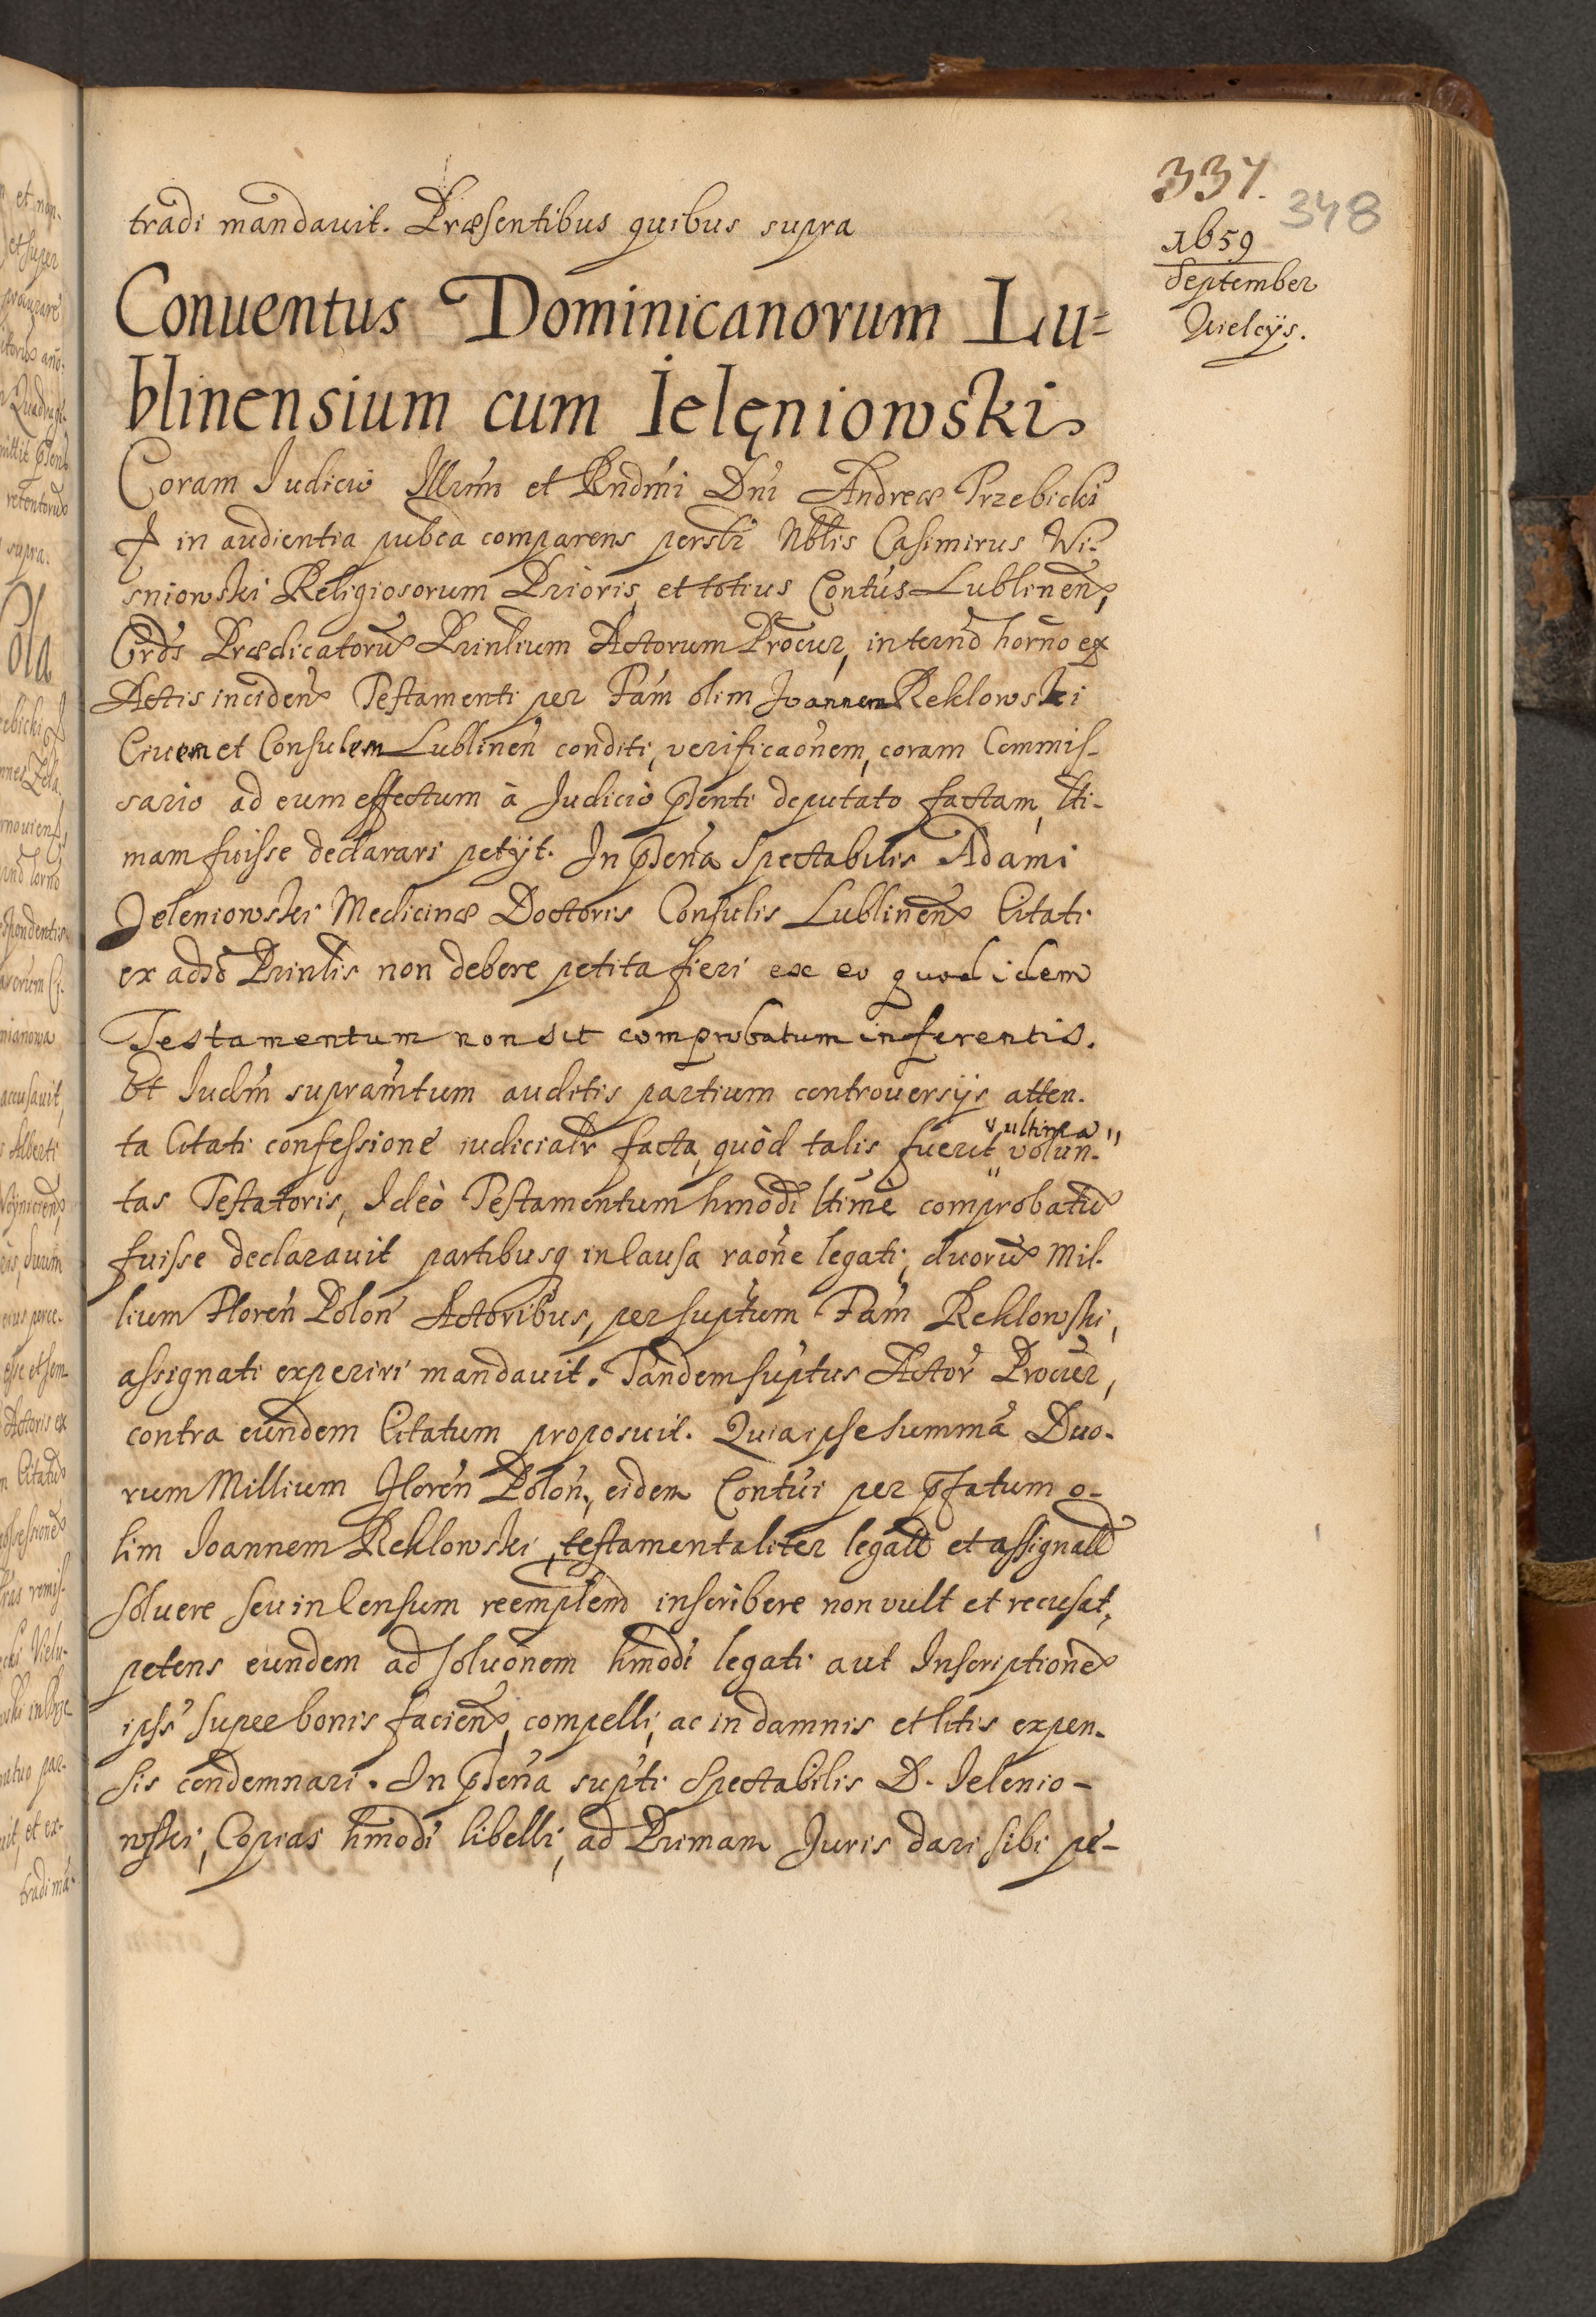 337.
348
1659
September
Kielcijs.
tradi mandavit. Præsentibus quibus supra
Conventus Dominicanorum Lu=
blinensium cum Ielęniowski
Coram Iudicio Illrm̃i et Rndm̃i Dñi Andreæ Trzebicki
& in audientia publ̃ca comparens persl̃r Nblĩs Casimirus Wi-
sniowski Religiosorum Prioris, et totius Conttũs Lublineñ,
Ordĩs Prædicatorũ Prinlium Actorum Procur, in termõ horño ex
Actis incideñ Testamenti per Fam̃ olim Joannem Reklowski
Civem et Consulem Lublineñ conditi, verificaõnem, coram Commis-
sario ad eum effectum à Iudicio p̃senti deputato factam, lti-
mam fuisse declarari petijt. In p̃señ̃a Spectabilis Adami
Jeleniowski Medicinæ Doctoris Consulis Lublineñ Citati
ex adṽo Prinlis non debere petita fieri ex eo quod idem
Testamentum non sit comprobatum inferentis.
Et Iudm̃ supram̃tum auditis partium controversijs atten-
ta Citati confessione iudicialr̃ facta, quòd talis fuerit ultima volun-
tas Testatoris, Ideò Testamentum hmõdi ltimè comprobatũ
fuisse declaravit partibusq in causa raõne legati, duorũ Mil-
lium Floreñ Poloñ Actoribus, per suptum Fam̃ Reklowski,
assignati experiri mandavit. Tandem suptus Actor̃ Procur,
contra eundem Citatum proposuit. Quia ipse summã Duo-
rum Millium Floreñ Poloñ, eidem Contũi per p̃fatum o-
lim Joannem Reklowski, testamentaliter legatã et assignatã
solvere seu in Censum reemptem̃ inscribere non vult et recusat,
petens eundem ad soluõnem hmõdi legati aut Inscriptionẽ
ipss̃ super bonis facieñ, compelli, ac in damnis et litis expen-
sis condemnari. In p̃señ̃a supti Spectabilis D. Jelenio-
wski, Copias hmõdi libelli, ad Primam Juris dari sibi pe-